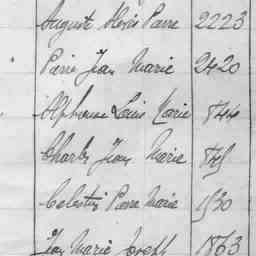 Auguste Alexis Pierre 2223
Pierre Jean Marie 2420
Alphonse Louis Marie 844
Charles Jean Marie 845
Celestin Pierre Marie 1530
Jean Marie Joseph 1863